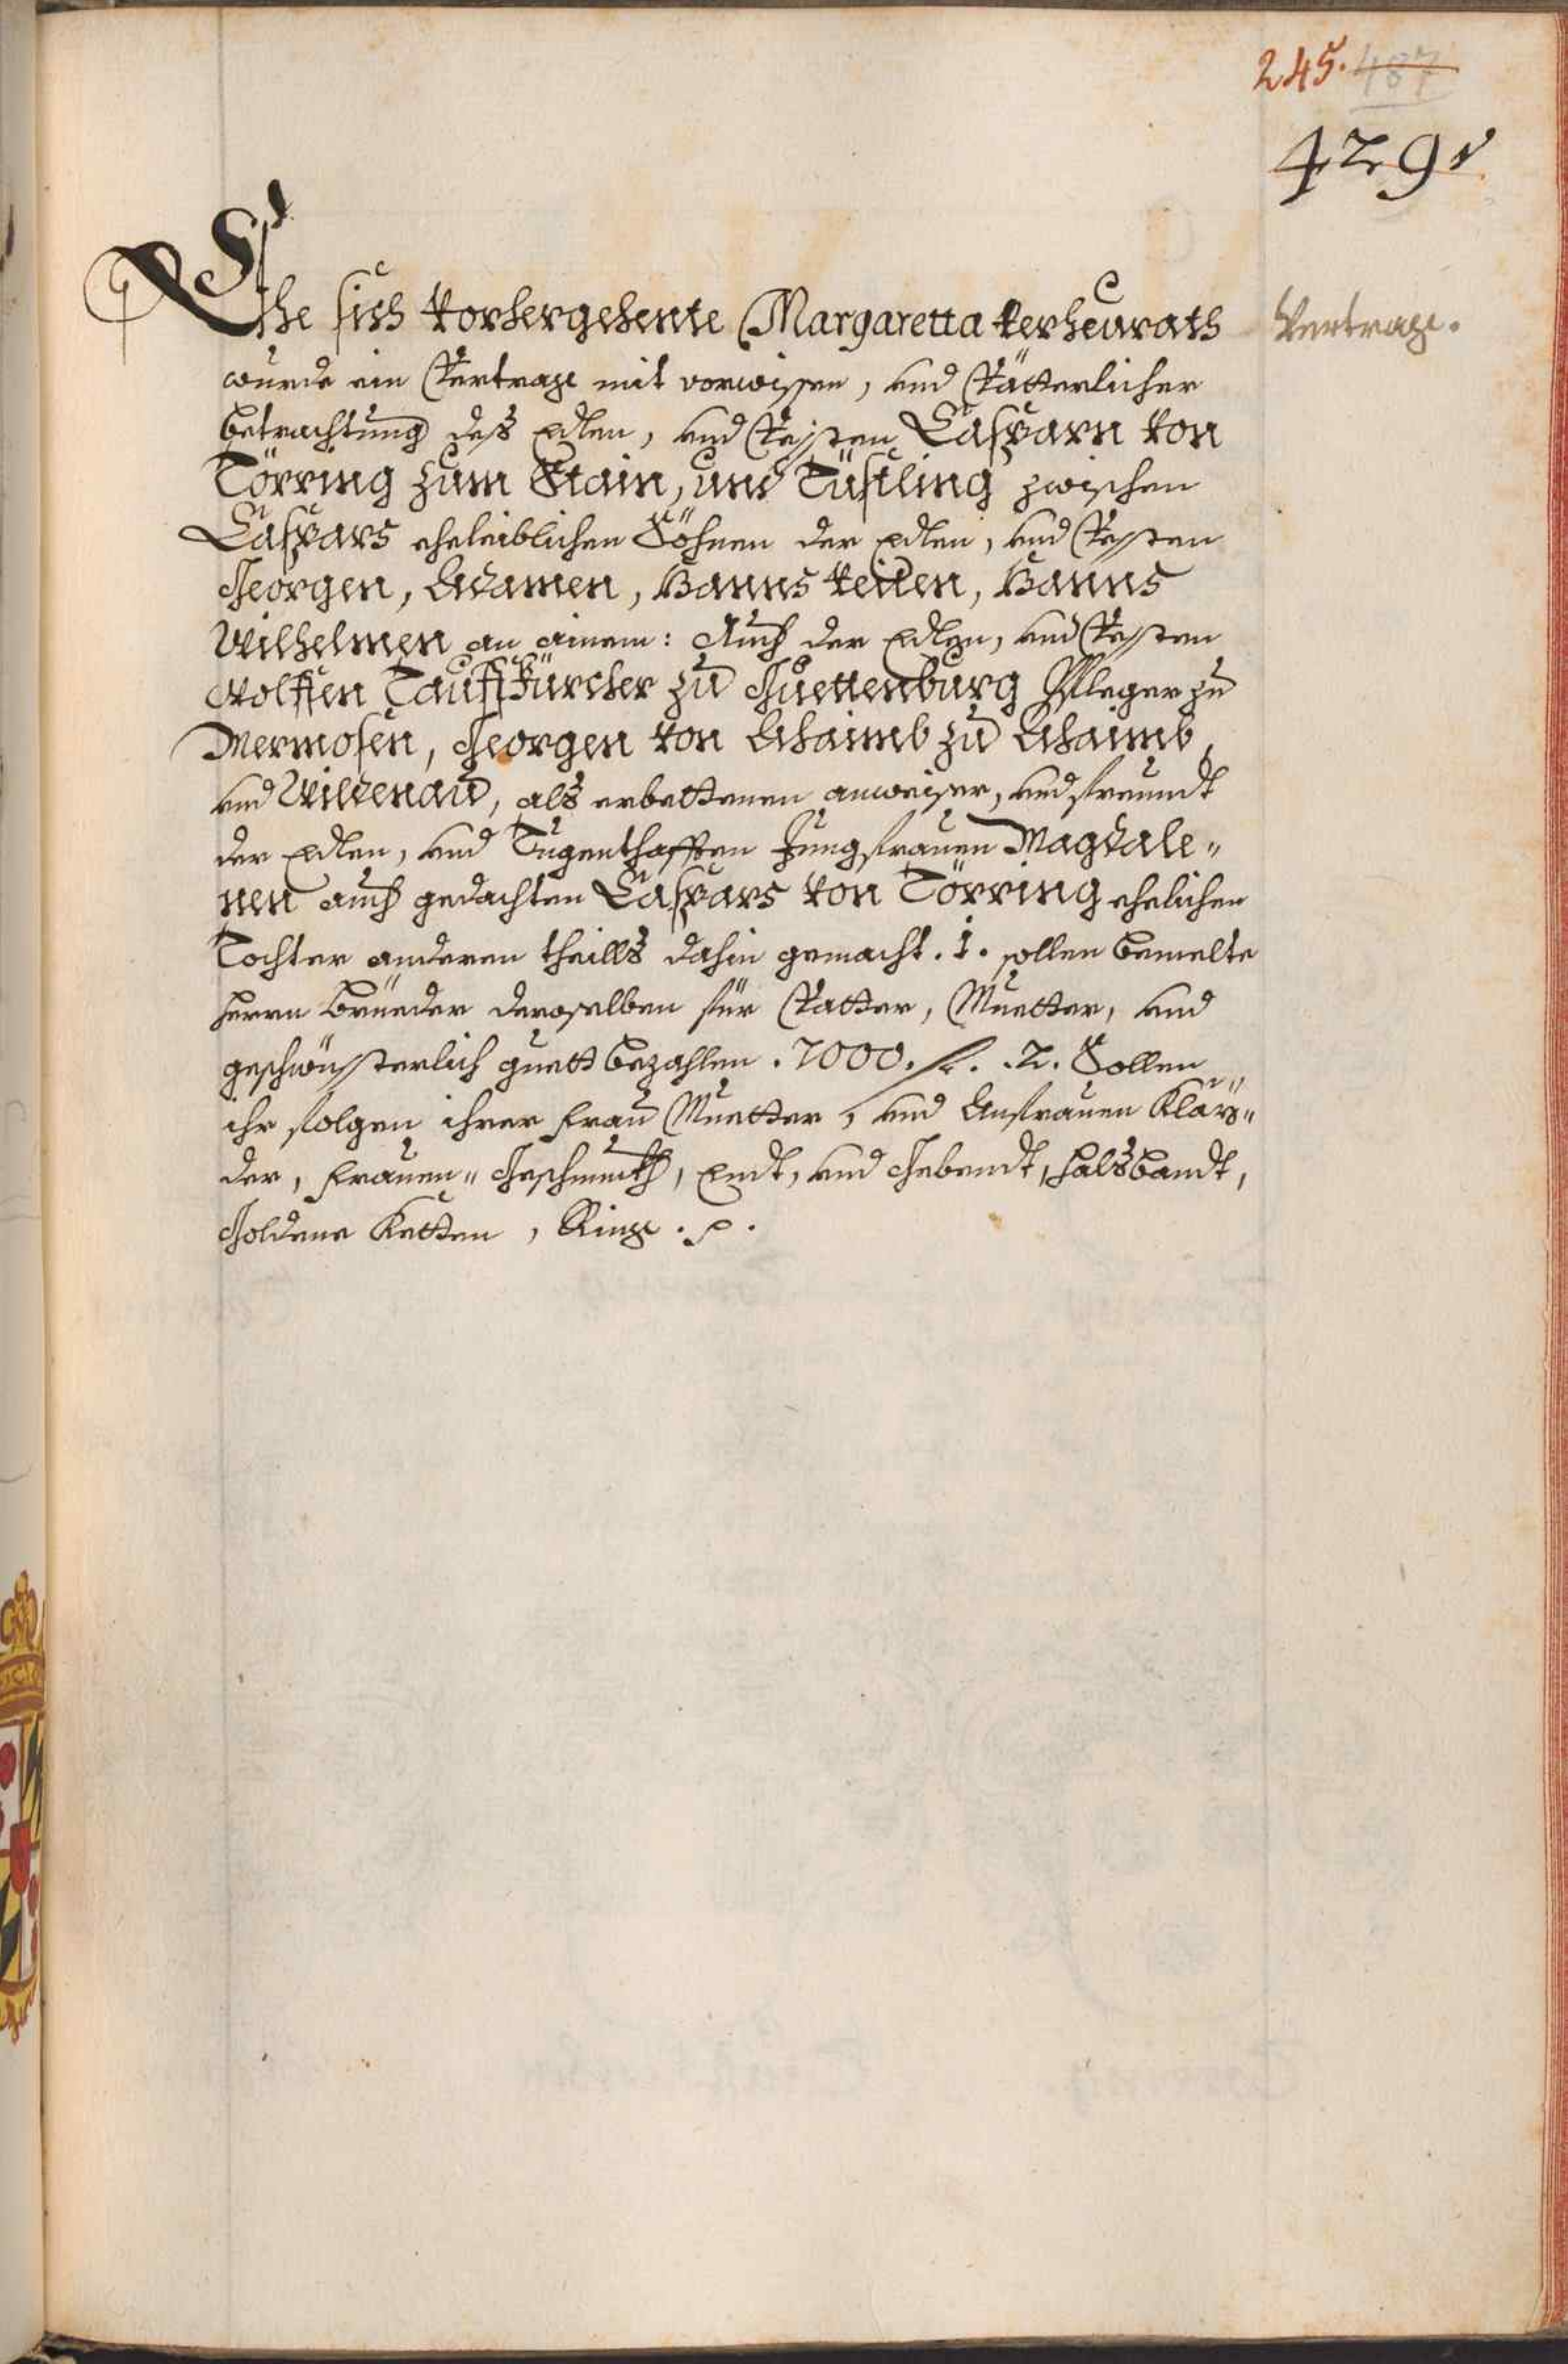 245. 487
429
Ehe sich vorhergehente Margaretta verheurath
Vertrage.
wurde ein Vertrage mit vorwissen, vnd Vätterlicher
betrachtung deß Edlen, vnd Vessten Casparn von
Törring zum Stain, und Tüssling zwischen
Caspars eheleiblichen Söhnen der Edlen, vnd Vessten
Georgen, Adamen, Hanns Veiten, Hanns
Wilhelmen an ainem: Auch der Edlen, vnd Vessten
Wolffen Tauffkürcher zu Guettenburg Pfleger zu
Mermosen, Georgen von Ahaimb zu Ahaimb,
vnd Wildenau, als erbettenen anweiser, vnd freundt
der Edlen, vnd Tugenthafften Jungfrauen Magdale„
nen auch gedachten Caspars von Törring ehelichen
Tochter anderen theills dahin gemacht. 1. sollen bemelte
herrn Brüeder deroselben für Vatter, Muetter, vnd
geschwüsterlich guett bezahlen. 7000. fl. .2. Sollen
ihr folgen ihrer Frau Muetter, vnd Anfrauen Klär„
der, Frauen„ Geschmukh, Endt, vnd Gebendt, Halsbandt,
Goldene Ketten, Ringe. p.